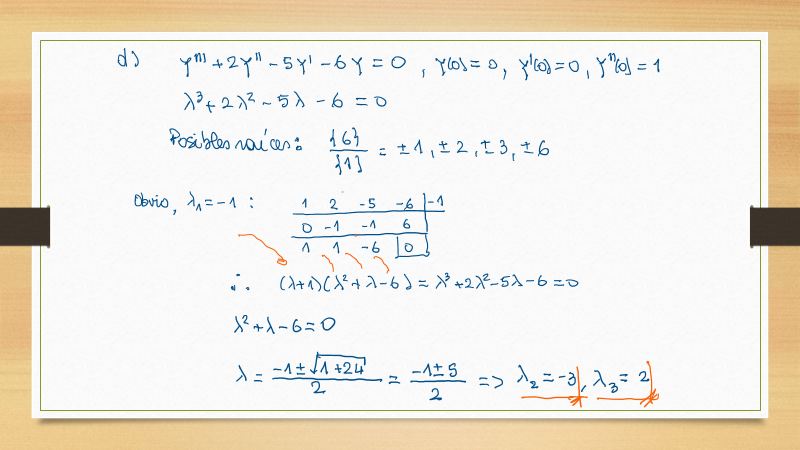 d) y''' + 2y'' - 5y' - 6y = 0 , y(0) = 0, y'(0) = 0, y''(0) = 1
λ³ + 2λ² - 5λ - 6 = 0
Posibles raíces: {6}/{1} = ±1, ±2, ±3, ±6
Obvio, λ₁ = -1 : 1 2 -5 -6 | -1
0 -1 -1 6
1 1 -6 | 0
∴ (λ+1)(λ² + λ - 6) = λ³ + 2λ² - 5λ - 6 = 0
λ² + λ - 6 = 0
λ = (-1 ± √(1 + 24))/2 = (-1 ± 5)/2 => λ₂ = -3, λ₃ = 2